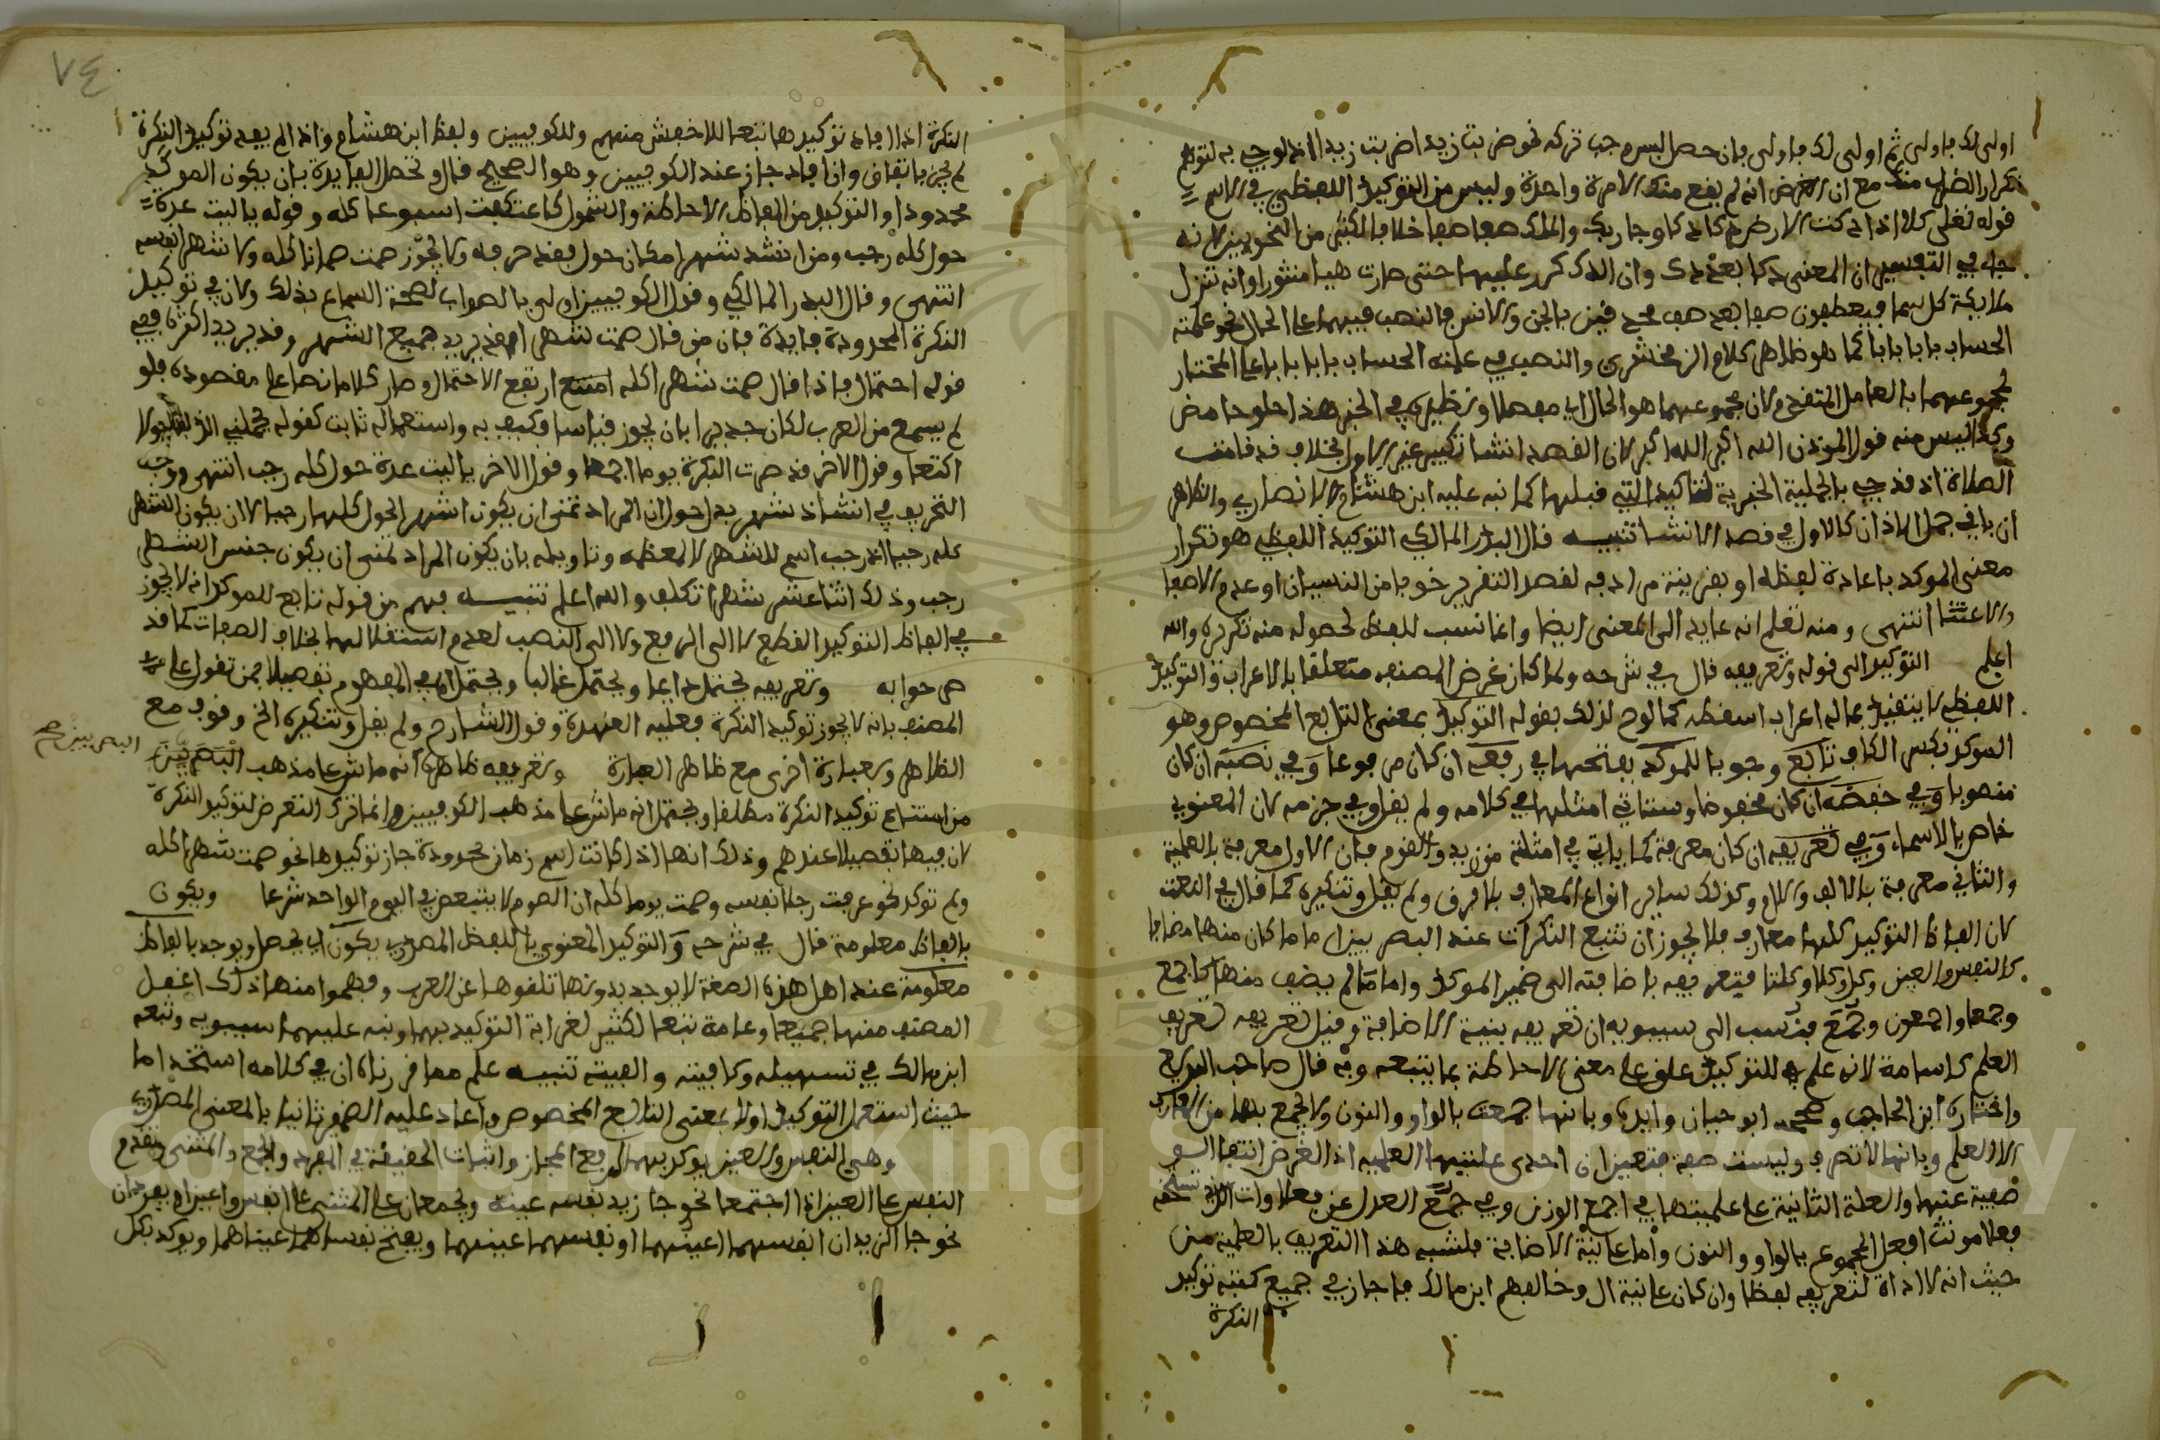 اولى لك فاولى ثم اولى لك فاولى فان حصل لبس وجب تركه نحو ضربت زيدا ضربت زيدا اذ لو جيء به لتوهم
تكرار الضرب منك مع ان الغرض انه لم يقع منك الا مرة واحدة وليس من التوكيد اللفظي في الاسم
قوله تعلى كلا اذا دكت الارض دكا دكا وجا ربك والملك صفا صفا خلافا لكثير من النحويين لانه
جاء في التفسير ان المعنى دكا بعد دك وان الدك كرر عليها حتى صارت هبا منثورا وانه تنزل
ملايكة كل سما فيصطفون صفا بعد صف محدقين بالجن والانس فالنصب فيهما على الحال نحو علمته
الحساب بابا بابا كما هو ظاهر كلام الزمخشري والنصب في علمته الحساب بابا بابا على المختار
لمجموعهما بالعامل المتقدم لان مجموعهما هو الحال اي مفصلا ونظيره في الخبر هذا حلو حامض
وكذا ليس منه قول الموذن الله اكبر الله اكبر لان القصد انشا تكبير غير الاول بخلاف قد قامت
الصلاة اذ قد جيء بالجملة الخبرية لتاكيد التي قبلها كما نبه عليه ابن هشام والانصاري والظاهر
ان باقي جمل الاذان كالاول في قصد الانشا تنبيه قال البدر المالكي التوكيد اللفظي هو تكرار
معنى الموكد باعادة لفظه او بقرينة مرادفه لقصد التقرير خوفا من النسيان او عدم الاصغا
والاعتنا انتهى ومنه تعلم انه عايد الى المعنى ايضا وانما نسب للفظ لحصوله منه تكريره والله
اعلم التوكيد الى قوله وتعريفه قال في شرحه ولما كان غرض المصنف متعلقا بالاعراب والتوكيد
اللفظي لا يتقيد بماله اعراب اسقطه كما لوح لذلك بقوله التوكيد بمعنى التابع المخصوص وهو
الموكد بكسر الكاف تابع وجوبا للموكد بفتحها في رفعه ان كان مرفوعا وفي نصبه ان كان
منصوبا وفي خفضه ان كان مخفوضا وستاتي امثلتها في كلامه ولم يقل وفي جزمه لان المعنوي
خاص بالاسماء وفي تعريفه ان كان معرفة كما ياتي في امثلة من زيد والقوم فان الاول معرفة بالعلمية
والثاني معرفة بالالف واللام وكذلك ساير انواع المعارف بلا فرق ولم يقل وتنكيره كما قال في النعت
لان الفاظ التوكيد كلها معارف فلا يجوز ان تتبع النكرات عند البصريين اما ما كان منها مضافا
كالنفس والعين وكل وكلا وكلتا فتعريفه باضافته الى ضمير الموكد واما ما لم يضف منها كاجمع
وجمعا واجمعون وجمع فنسب الى سيبويه ان تعريفه بنية الاضافة وقيل تعريفه تعريف
العلم كاسامة لانه علم للتوكيد علق على معنى الاحاطة بما يتبعه وبه قال صاحب البديع
واختاره ابن الحاجب وصححه ابو حيان وابده وبانها جمعت بالواو والنون ولا يجمع بهما من المعارف
الا العلم وبانها لا تصرف وليست صفة فتعين ان احدى علتيها العلمية اذ الغرض انتفا الو
صفية عنها والعلة الثانية على علميتها في اجمع الوزن وفي جمع العدل عن فعلاوات
فعلا مونث افعل المجموع بالواو والنون واما على نية الاضافة فلشبه هذا التعريف بالعلمية من
حيث انه لا اداة لتعريفه لفظا وان كان على نية ال وخالفهم ابن مالك فاجاز في جميع كتبه توكيد
النكرة
٧٤
النكرة اذا افاد توكيدها تبعا للاخفش منهم وللكوفيين ولفظ ابن هشام واذا لم يفد توكيد النكرة
لم يجز باتفاق وان افاد جاز عند الكوفيين وهو الصحيح قال وتحصل الفايدة بان يكون الموكد
محدودا والتوكيد من الفاظ الاحاطة والشمول كاعتكفت اسبوعا كله وقوله ياليت عدة
حول كله رجب ومن انشد شهر مكان حول فقد حرفه ولا يجوز صمت زمانا كله ولا شهرا نفسه
انتهى وقال البدر المالكي وقول الكوفيين اولى بالصواب لصحة السماع بذلك ولان في توكيد
النكرة المحدودة فايدة فان من قال صمت شهرا قد يريد جميع الشهر وقد يريد اكثره ففي
قوله احتمال فاذا قال صمت شهرا كله ارتفع الاحتمال وصار كلاما نصا على مقصوده فلو
لم يسمع من العرب لكان جديرا بان يجوز قياسا وكيف به واستعماله ثابت كقوله تحملني الذلفا حولا
اكتعا وقول الاخر قد صرت البكرة يوما اجمعا وقول الاخر ياليت عدة حول كله رجب انتهى ووجه
التحريف في انشاد شهر بدل حول ان المراد تمنى ان يكون اشهر الحول كلها رجبا لا ان يكون الشهر
كله رجبا اذ رجب اسم للشهر لا لمعظمه وتاويله بان يكون المراد تمنى ان يكون جنس الشهر
رجب وذلك اثنا عشر شهرا تكلف والله اعلم تنبيه فهم من قوله تابع للموكد انه لا يجوز
في الفاظ التوكيد القطع لا الى الرفع ولا الى النصب لعدم استقلالها بخلاف الصفات كما قد
صرحوا به وتعريفه يحتمل دايما ويحتمل غالبا ويحتمل ان في المفهوم تفصيلا فمن تقول على
المصنف بانه لا يجوز توكيد النكرة فعليه العهدة وقول الشارح ولم يقل وتنكيره الخ وقوف مع
الظاهر وبعبارة اخرى مع ظاهر العبارة وتعريفه ظاهره انه ماش على مذهب البصريين
البصريين صح
من امتناع توكيد النكرة مطلقا ويحتمل انه ماش على مذهب الكوفيين وانما ترك التعرض لتوكيد النكرة
لان فيها تفصيلا عندهم وذلك انها اذا كانت اسم زمان محدودة جاز توكيدها نحو صمت شهرا كله
ولم توكد نحو عرفت رجلا نفسه وصمت يوما كله ان الصوم لا يتبعض في اليوم الواحد شرعا ويكون
بالفاظ معلومة قال في شرحه والتوكيد المعنوي باللفظ المصدري يكون اي يحصل ويوجد بالفاظ
معلومة عند اهل هذه الصنعة لا يوجد بدونها تلقوها عن العرب وفهموا منها ذلك اغفل
المصنف منها جميعا وعامة تبعا لكثير لغرابة التوكيد بهما ونبه عليهما سيبويه وتبعه
ابن مالك في تسهيله وكافيته والفيته تنبيه علم مما قررناه ان في كلامه استخداما
حيث استعمل التوكيد اولا بمعنى التابع المخصوص واعاد عليه الضمير ثانيا بالمعنى المصدري
وهي النفس والعين يوكد بهما لرفع المجاز واثبات الحقيقة في المفرد والجمع والمثنى وتقدم
النفس على العين اذا اجتمعا نحو جا زيد نفسه عينه ويجمعان على المثنى على انفس واعين او يفردان
نحو جا الزيدان انفسهما اعينهما او نفسهما عينهما ويقبح نفساهما عيناهما ويوكد بكل